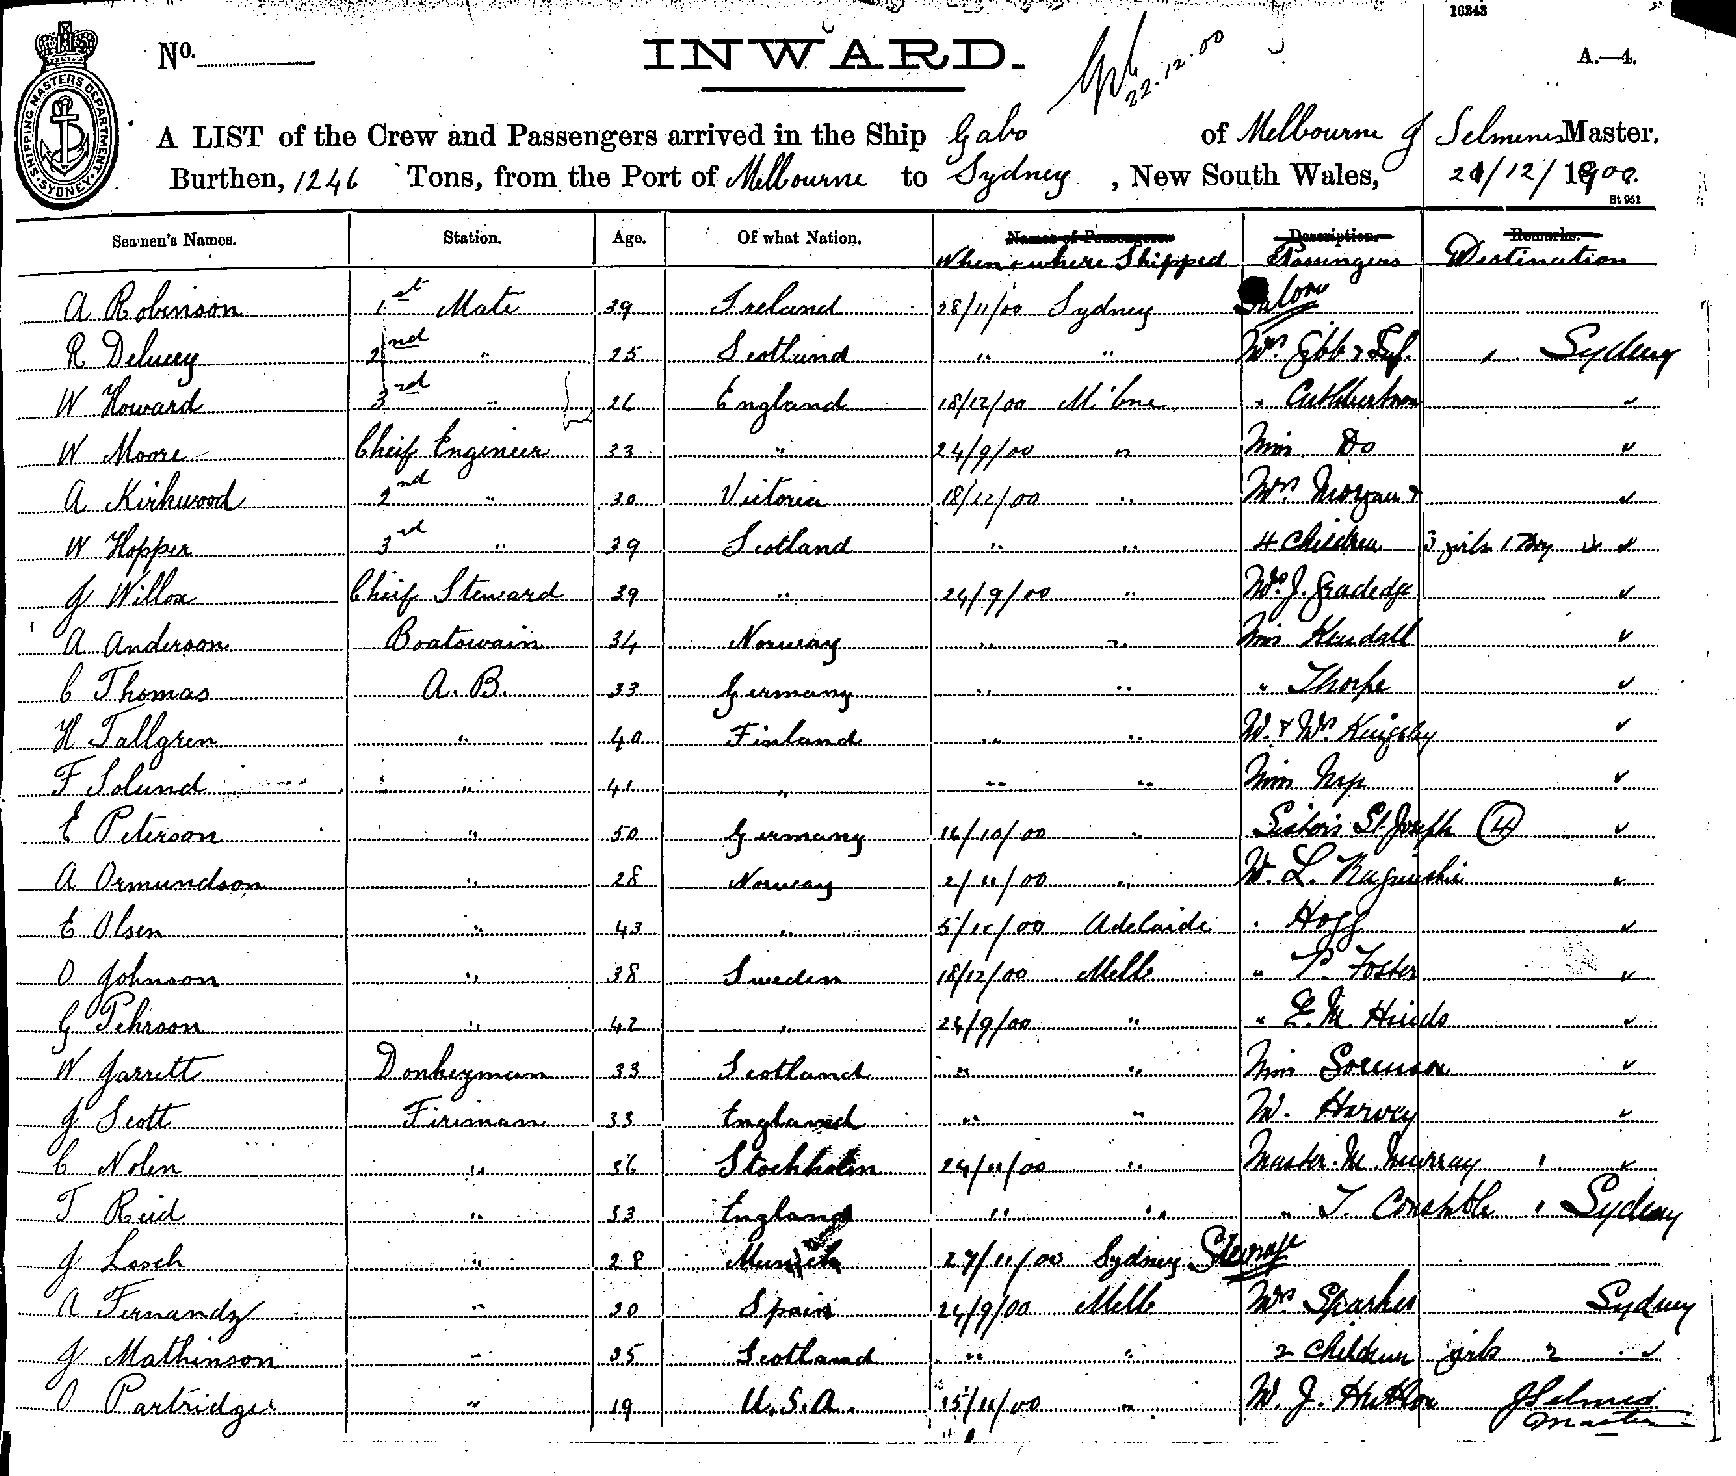 10243
No.
INWARD.
22.12.00
A.—4.
SHIPPING MASTERS DEPARTMENT. SYDNEY.
A LIST of the Crew and Passengers arrived in the Ship Gabo of Melbourne J Selmes Master.
Burthen, 1246 Tons, from the Port of Melbourne to Sydney, New South Wales, 21/12/1900.
St 952
Seamen's Names. Station. Age. Of what Nation. Names of Passengers. Description. Remarks.
When & where Shipped Passengers Destination
A Robinson 1st Mate 39 Ireland 28/11/00 Sydney Saloon
R Delucey 2nd " 25 Scotland " " Mrs Gibb & Inf. " Sydney
W Howard 3rd " 26 England 18/12/00 M'bne " Cuthbertson "
W Moore Cheif Engineer 33 " 24/9/00 " Miss Do "
A Kirkwood 2nd " 30 Victoria 18/12/00 " Mrs Morgan & "
W Hopper 3rd " 39 Scotland " " 4 Children 3 girls 1 Boy "
J Willox Cheif Steward 39 " 24/9/00 " "
A Anderson Boatswain 34 Norway " " Miss Kendall "
C Thomas A.B. 33 Germany " " " Thorpe "
H Tallgren " 40 Finland " " M. & Mrs Kingsley "
F Solund " 41 " " " Miss "
E Peterson " 50 Germany 16/10/00 " Sisters St. Joseph (4) "
A Ormundson " 28 Norway 2/11/00 " M. L. "
E Olsen " 43 " 5/11/00 Adelaide " Hogg "
O Johnson " 38 Sweden 18/12/00 Melb " P. Foster "
G Pehrson " 42 " 24/9/00 " " E. M. Hinds "
W Jarrett Donkeyman 33 Scotland " " Miss Sorenson "
J Scott Fireman 33 England " " M. Harvey "
C Nolen " 36 Stockholm 24/11/00 " Master M Murray " "
T Reid " 33 England " " " T. Constable " Sydney
J Lesch " 28 Munich 27/11/00 Sydney Steerage
A Fernandz " 30 Spain 24/9/00 Melb Mrs Sparkes Sydney
J Mathinson " 35 Scotland " " 2 Children girls 2 "
O Partridge " 19 U.S.A. 15/11/00 " M. J. Hutton J Selmes
Master